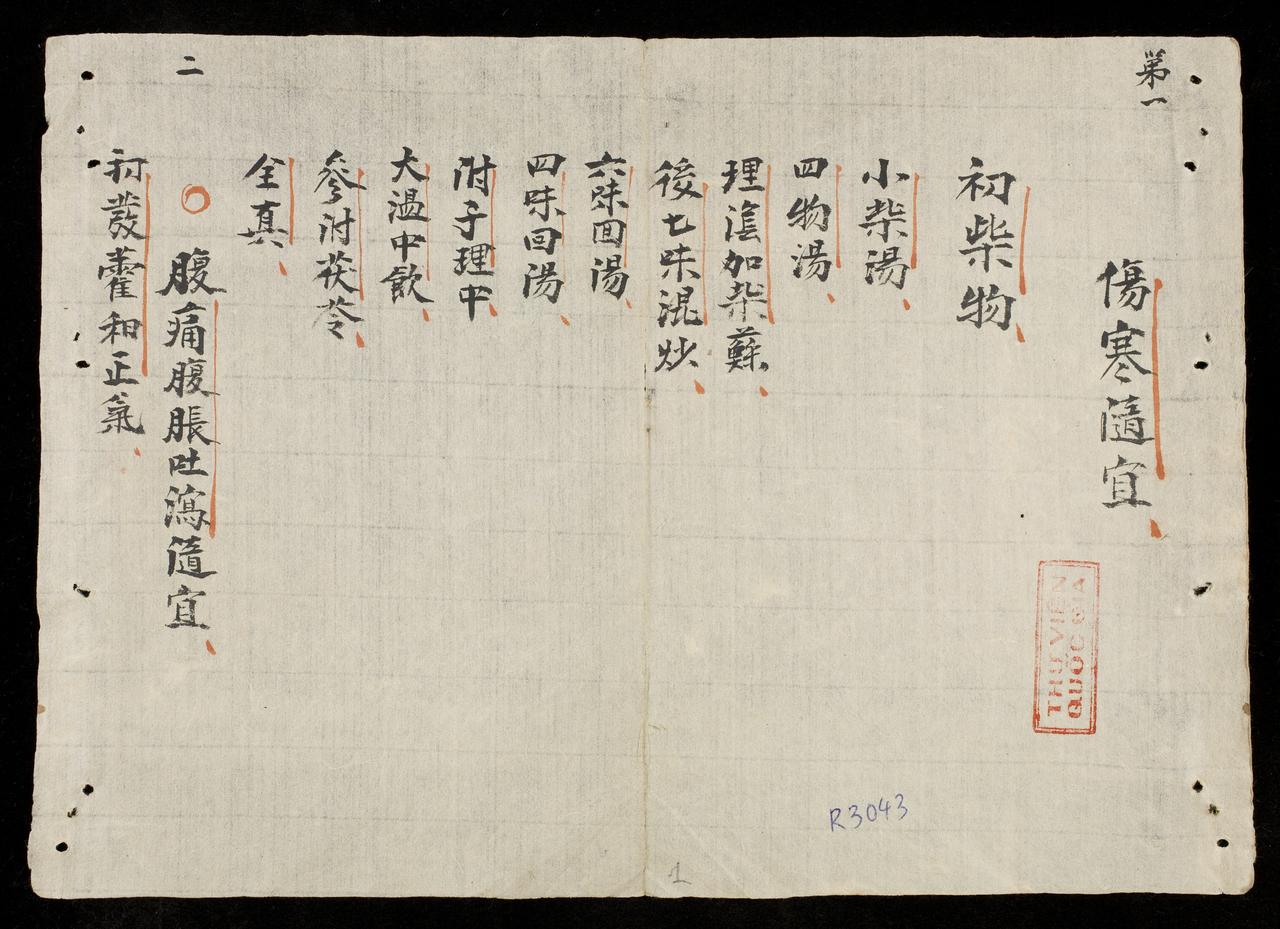 第一
傷寒隨宜
初柴物
小柴湯
四物湯
理陰加柴蘇
後七味混炒
六味回湯
四味回湯
附子理中
大溫中飲
參附茯苓
全真
二
腹痛腹脹吐瀉隨宜
初發藿和正氣
THƯ VIỆN
QUỐC GIA
R3043
1